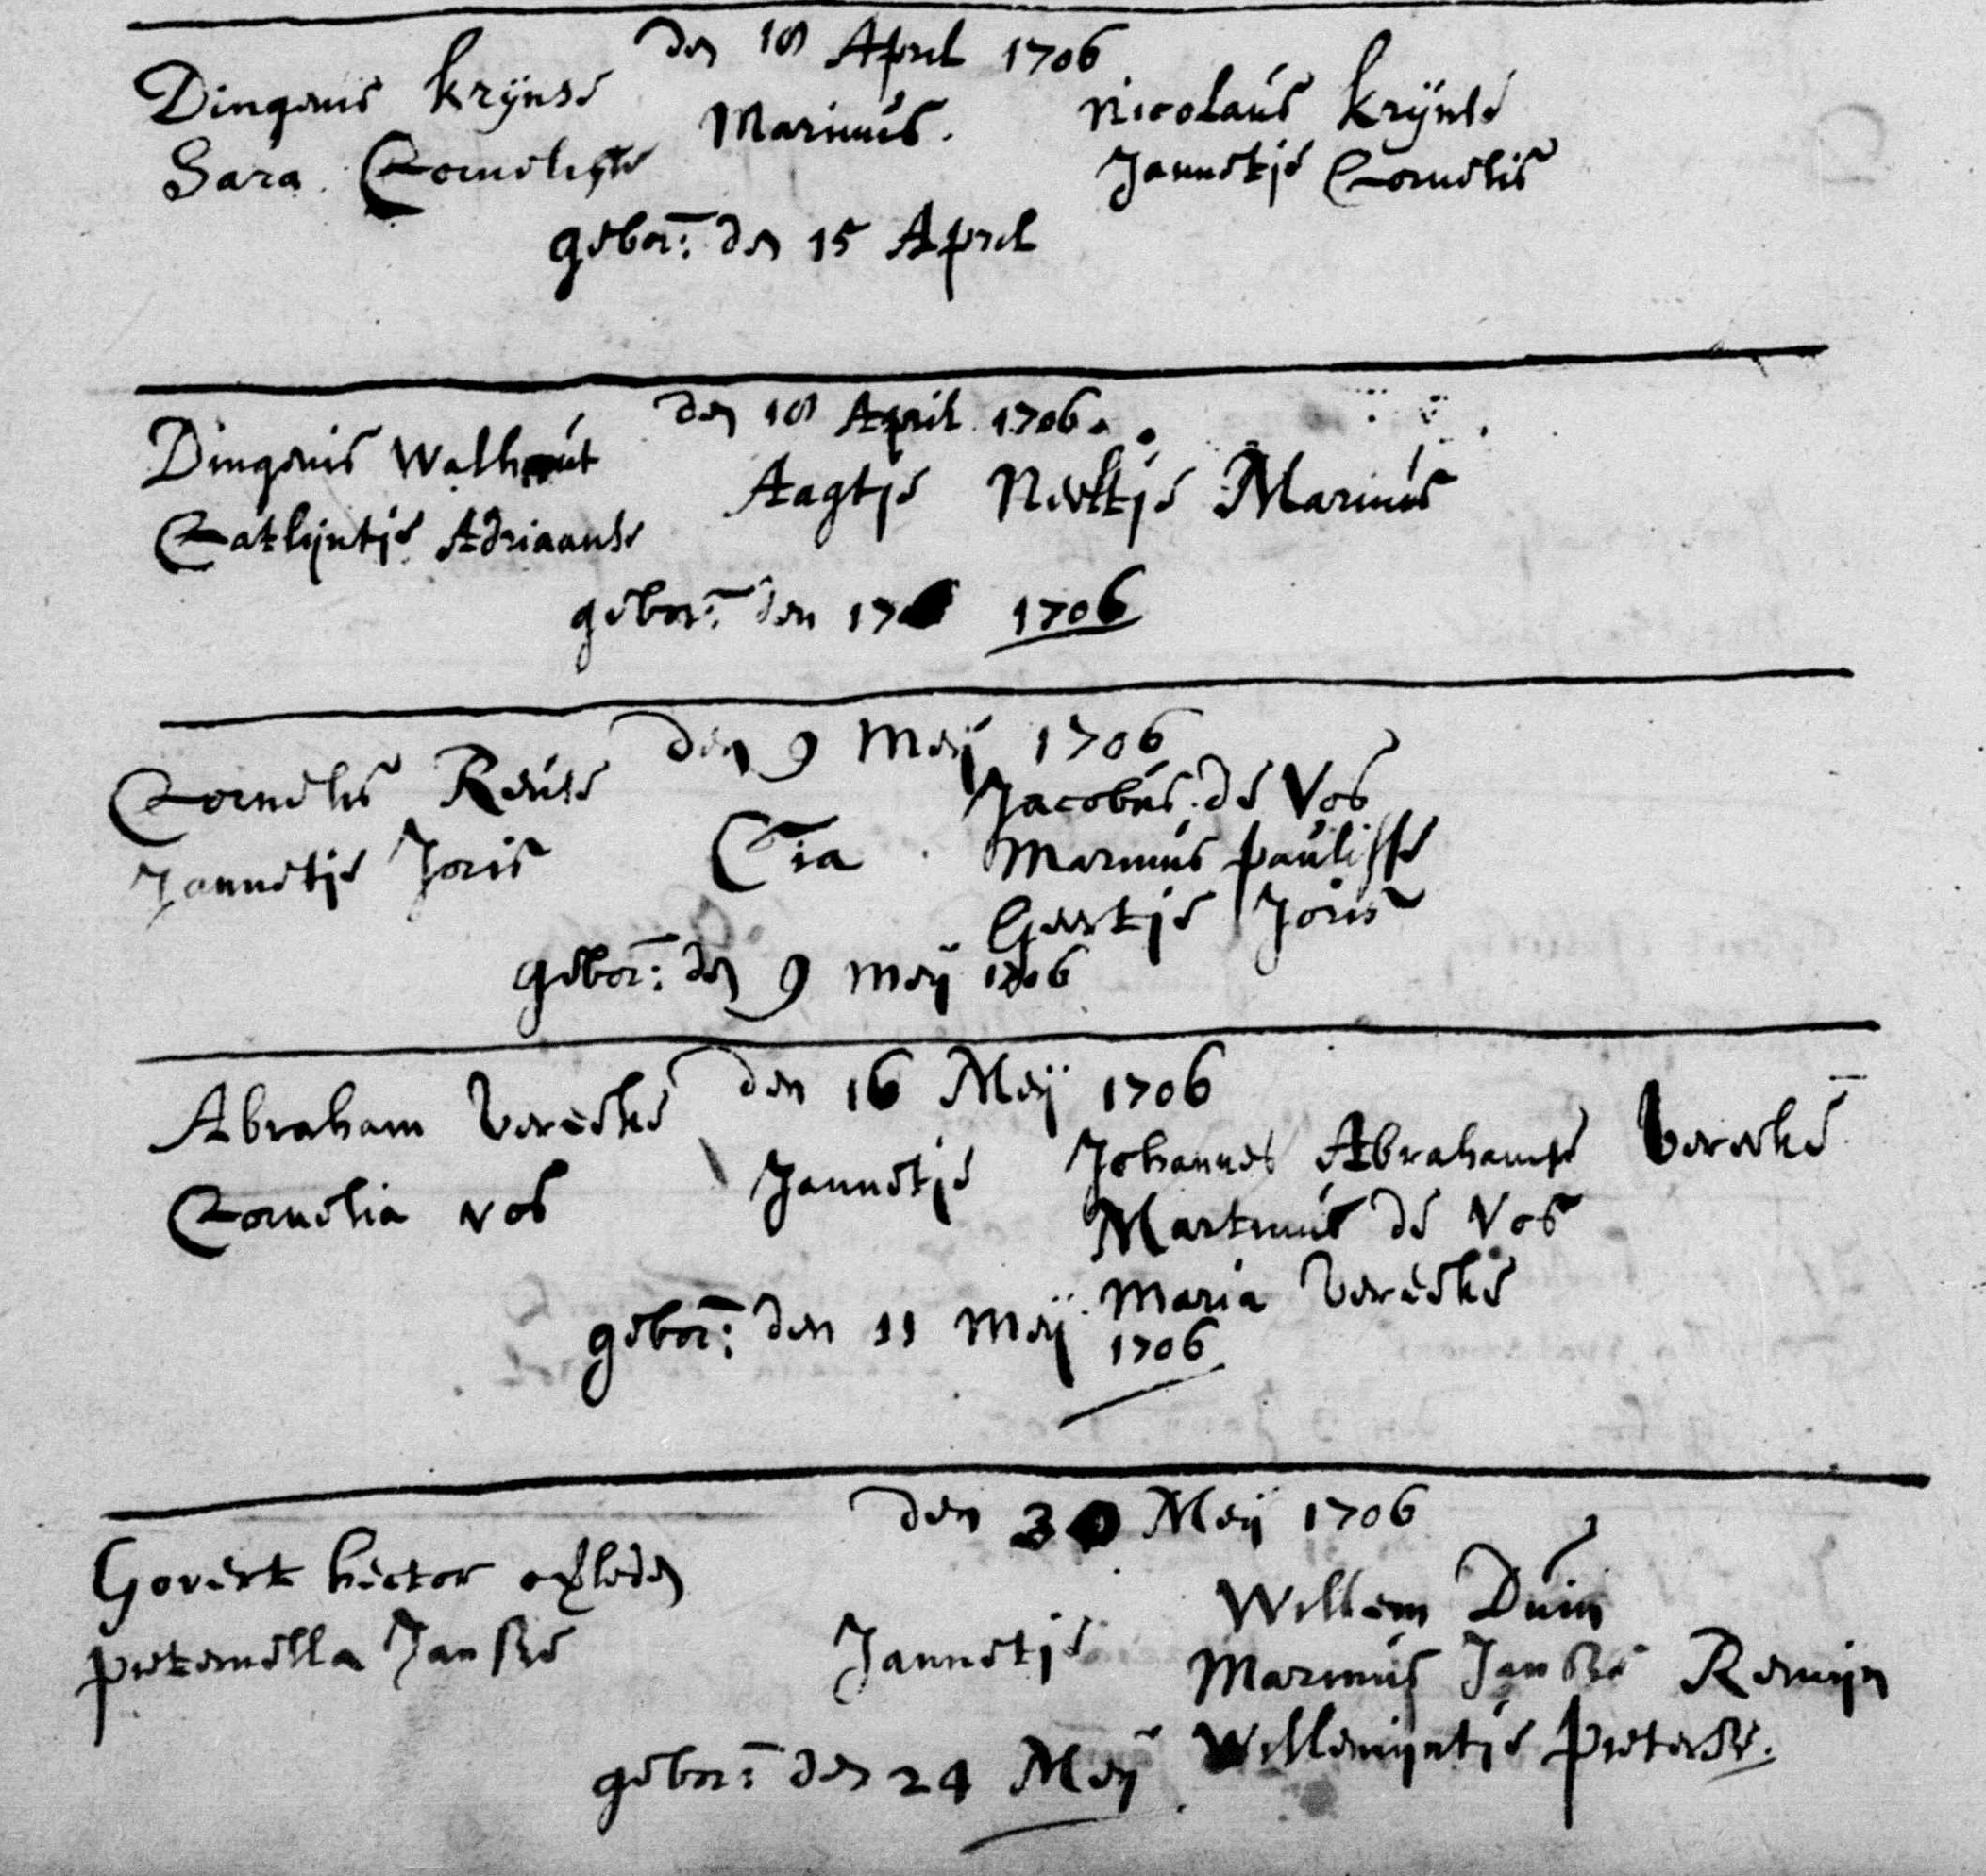 den 18 April 1706
Dingenis Krijnse Marinus. Nicolaus Krijnse
Sara Cornelisse Jannetje Cornelis
gebor: den 15 April
den 18 April 1706.
Dingenis Walhout Aagtje Neeltje Marinus
Catlijntje Adriaanse
gebor: den 17 1706
den 9 Meij 1706
Cornelis Jacobus de Vos
Jannetje Joris Cia Marinus Paulisse
Geertje Joris
gebor: den 9 Meij 1706
den 16 Meij 1706
Abraham Vereeke Jannetje Johannes Abrahamse Vereeke
Cornelia Vos Martinus de Vos
Maria Vereeke
gebor: den 11 Meij 1706
den 30 Meij 1706
Govert Hector Willem
Pieternella Jansse Jannetje Marinus Jansse Romijn
Willemijntje Pieterse.
gebor: den 24 Meij